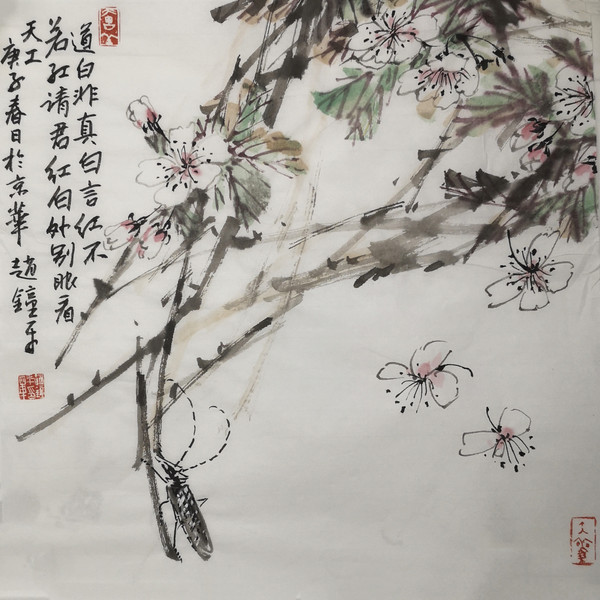 道白非真白言红不
若红请君红白外别眼看
天工
庚子春日於京華 趙鐘